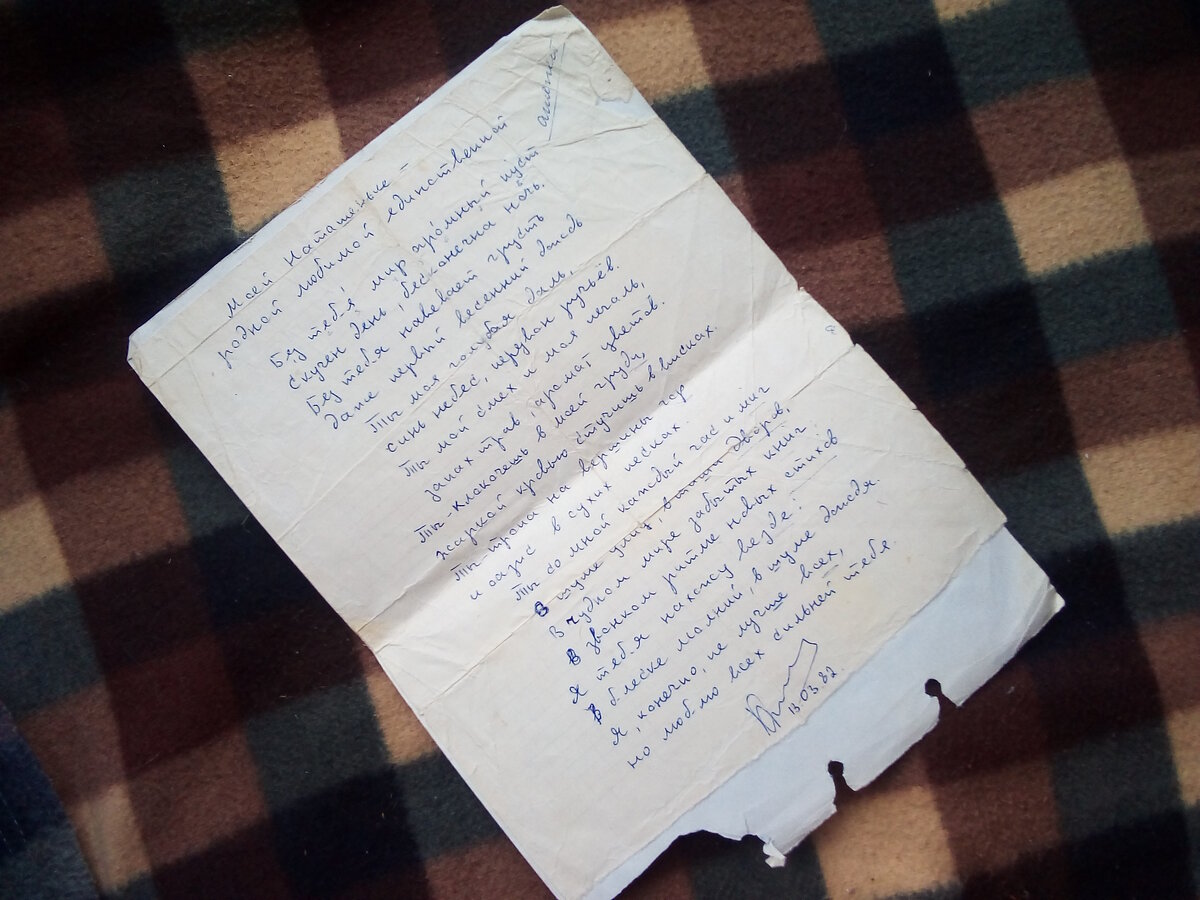 Моей Наташеньке –
родной любимой единственной
Без тебя, мир огромный пуст
скучен день, бесконечна ночь.
Без тебя навевает грусть
даже первый весенний дождь
Ты моя голубая даль,
синь небес, перезвон ручьёв.
Ты мой смех и моя печаль,
запах трав, аромат цветов.
Ты – клокочешь в моей груди,
жаркой кровью стучишь в висках.
Ты тропа на вершины гор
и оазис в сухих песках.
Ты со мной каждый час и миг
В шуме улиц, в тиши дворов,
В чудном мире забытых книг
В звонком ритме новых стихов
Я тебя нахожу везде:
В блеске молний, в шуме дождя.
Я, конечно, не лучше всех,
но люблю всех сильней тебя.
13.03.82.